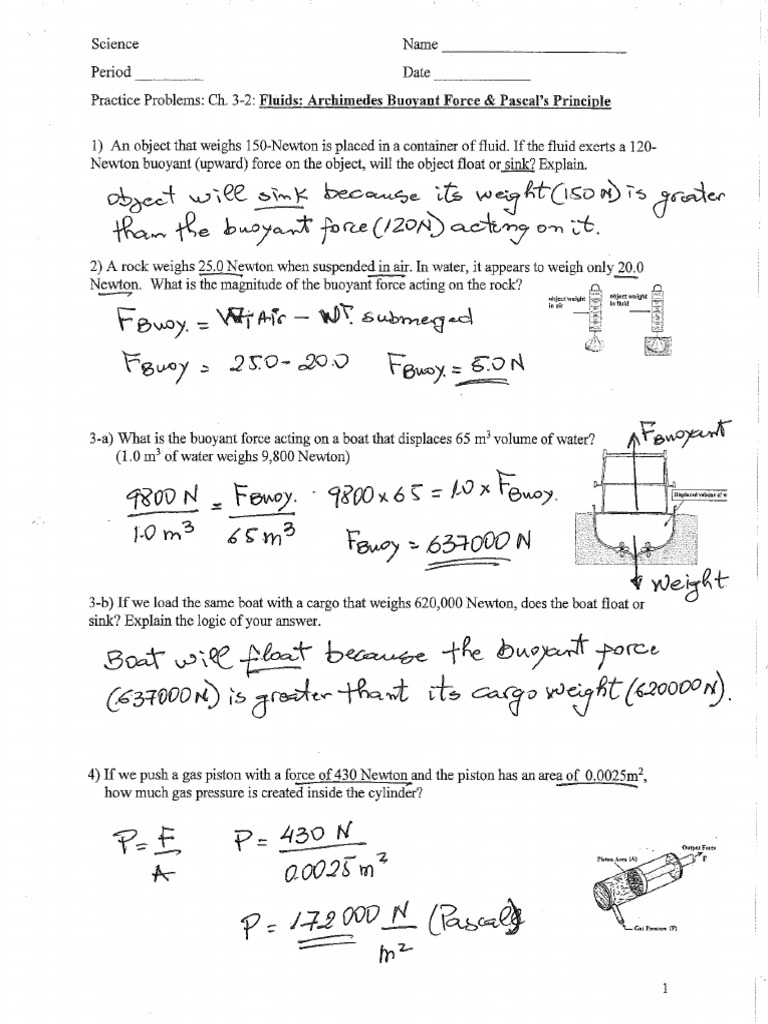 Science Name ____________________
Period ________ Date ____________
Practice Problems: Ch. 3-2: Fluids: Archimedes Buoyant Force & Pascal's Principle
1) An object that weighs 150-Newton is placed in a container of fluid. If the fluid exerts a 120-
Newton buoyant (upward) force on the object, will the object float or sink? Explain.
object will sink because its weight (150N) is greater
than the buoyant force (120N) acting on it.
2) A rock weighs 25.0 Newton when suspended in air. In water, it appears to weigh only 20.0
Newton. What is the magnitude of the buoyant force acting on the rock?
object weight
in air
object weight
in fluid
FBuoy. = WT Air - WT. submerged
FBuoy = 25.0 - 20.0 FBuoy. = 5.0 N
3-a) What is the buoyant force acting on a boat that displaces 65 m³ volume of water?
(1.0 m³ of water weighs 9,800 Newton)
FBuoyant
Displaced volume of w
9800 N / 1.0 m³ = FBuoy. / 65 m³ . 9800 x 65 = 1.0 x FBuoy.
FBuoy = 637000 N
Weight
3-b) If we load the same boat with a cargo that weighs 620,000 Newton, does the boat float or
sink? Explain the logic of your answer.
Boat will float because the buoyant force
(637000N) is greater thant its cargo weight (620000N).
4) If we push a gas piston with a force of 430 Newton and the piston has an area of 0.0025m²,
how much gas pressure is created inside the cylinder?
P = F / A P = 430 N / 0.0025 m²
Output Force
F
Piston Area (A)
Gas Pressure (P)
P = 172000 N / m² (Pascals)
1